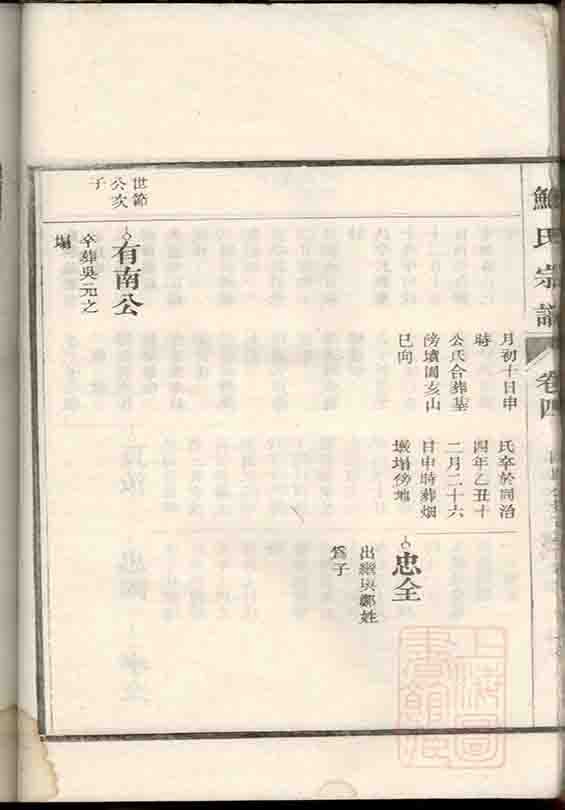 鮑氏宗譜
卷四
月初十日申
時
公氏合葬墓
傍墳圖亥山
巳向
氏卒於同治
四年乙丑十
二月二十六
日申時葬烟
墩塌傍地
忠全
出繼
鄭姓
爲子
世節
公次
子
有南公
卒葬吳元之
塌
上海圖
書館藏